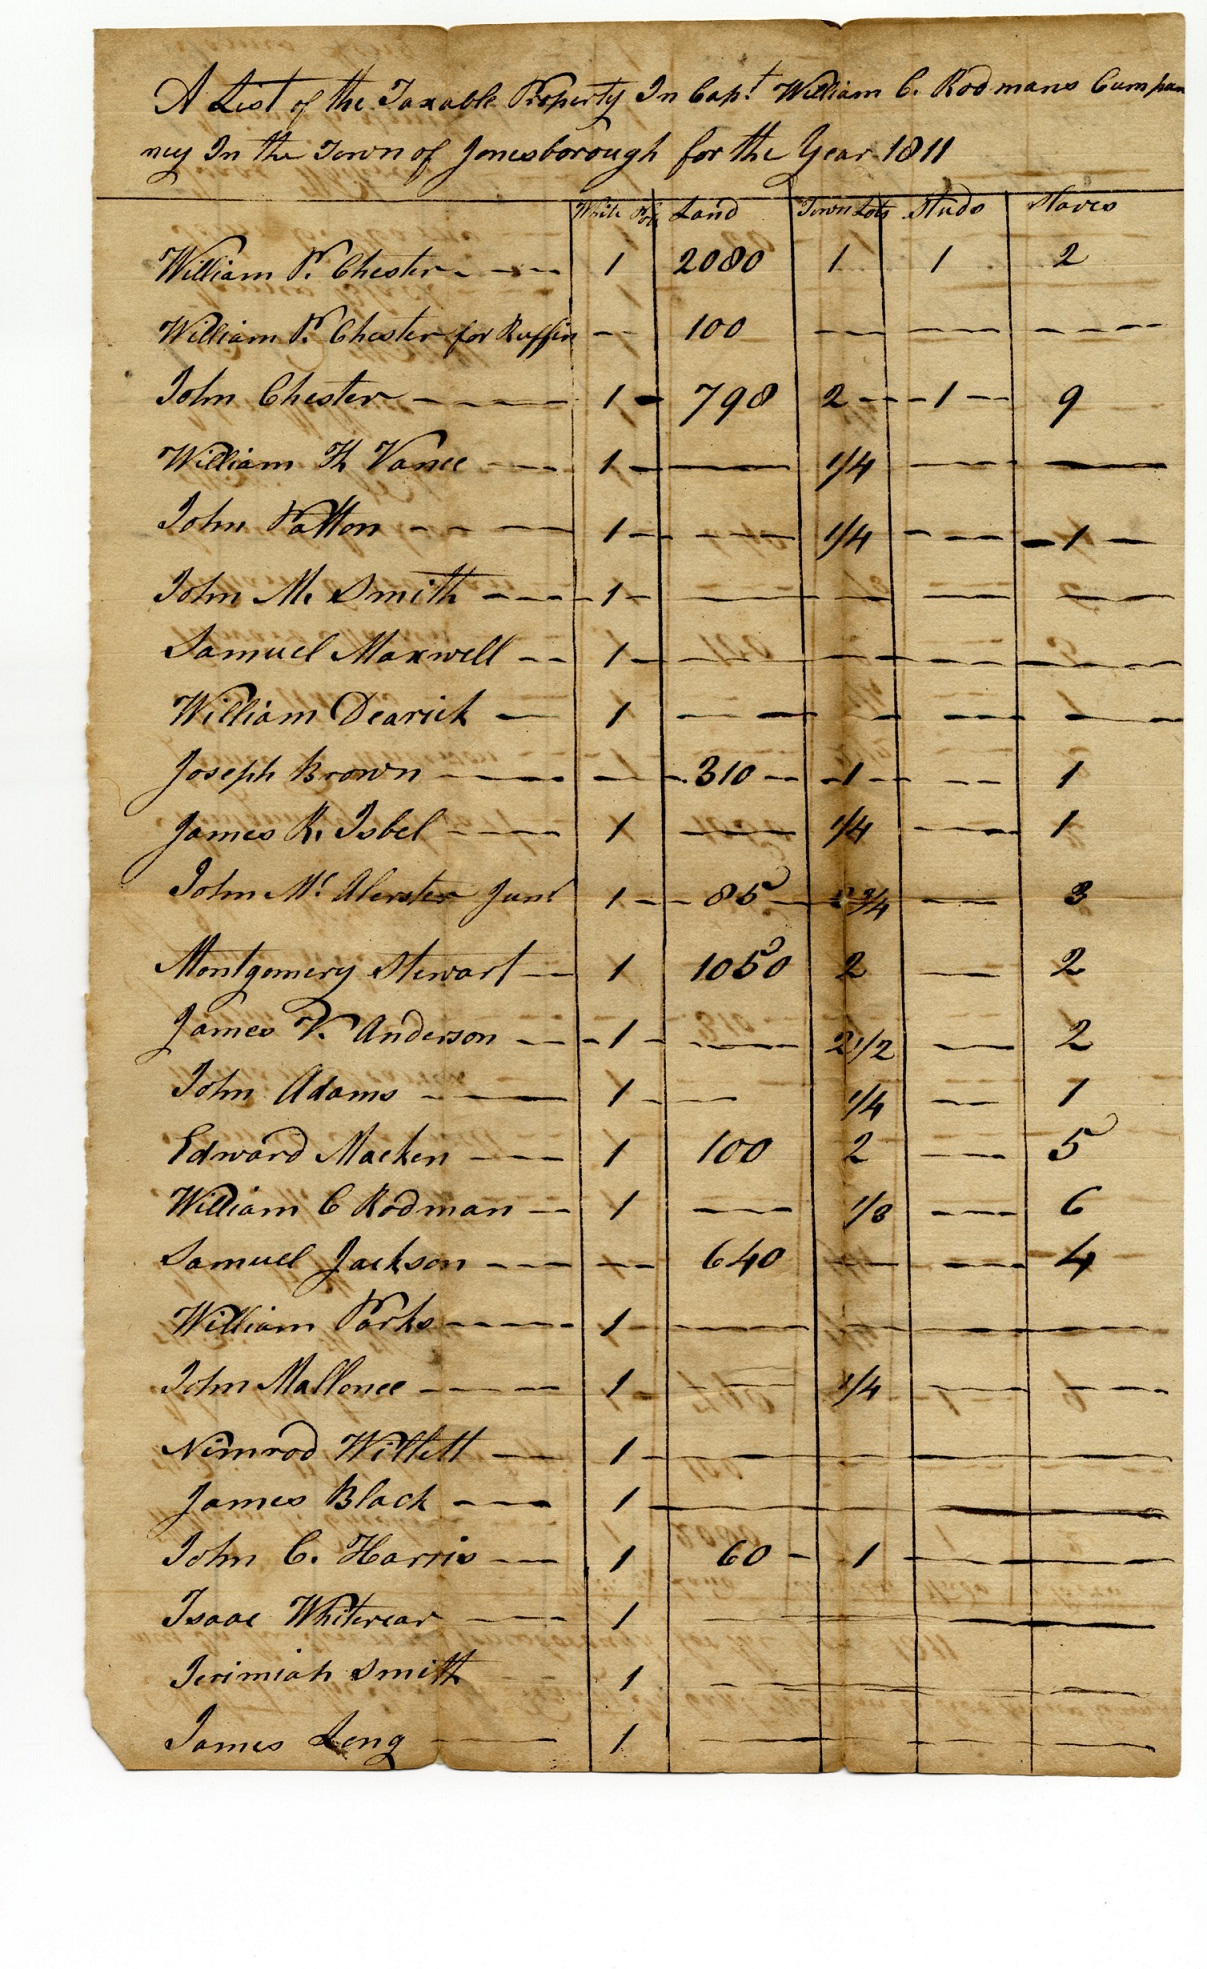 A List of the Taxable Property In Capt William C. Rodmans Cumpan
ney In the Town of Jonesborough for the Year 1811
White Pole Land Town Lots Studs Slaves
William P. Chester 1 2080 1 1 2
William P. Chester for Ruffin — 100 — — —
John Chester 1 798 2 1 9
William K Vance 1 — 1/4 — —
John Patton 1 — 1/4 — 1
John M. Smith 1 — — — —
Samuel Maxwell 1 — — — —
William Dearick 1 — — — —
Joseph Brown — 310 1 — 1
James R. Isbel 1 — 1/4 — 1
John Mc Alerster Junr 1 85 3/4 — 3
Montgomery Stewart 1 1050 2 — 2
James V. Anderson 1 — 2 1/2 — 2
John Adams 1 — 1/4 — 1
Edward Macken 1 100 2 — 5
William C Rodman 1 — 1/8 — 6
Samuel Jackson — 640 — — 4
William Parks 1 — — — —
John Mallonee 1 — 1/4 — —
Nimrod Willett 1 — — — —
James Black 1 — — — —
John C. Harris 1 60 1 — —
Isaac Whiterear 1 — — — —
Jerimiah Smith 1 — — — —
James Long 1 — — — —